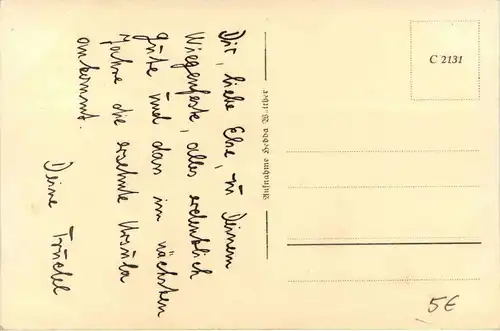 Dir, liebe Else, zu Deinem
Wiegenfeste, alles erdenklich
gute und das im nächsten
Jahre die ersehnte Ursula
ankommt.
Deine Trudel
Aufnahme Hedda Walther
C 2131
5€